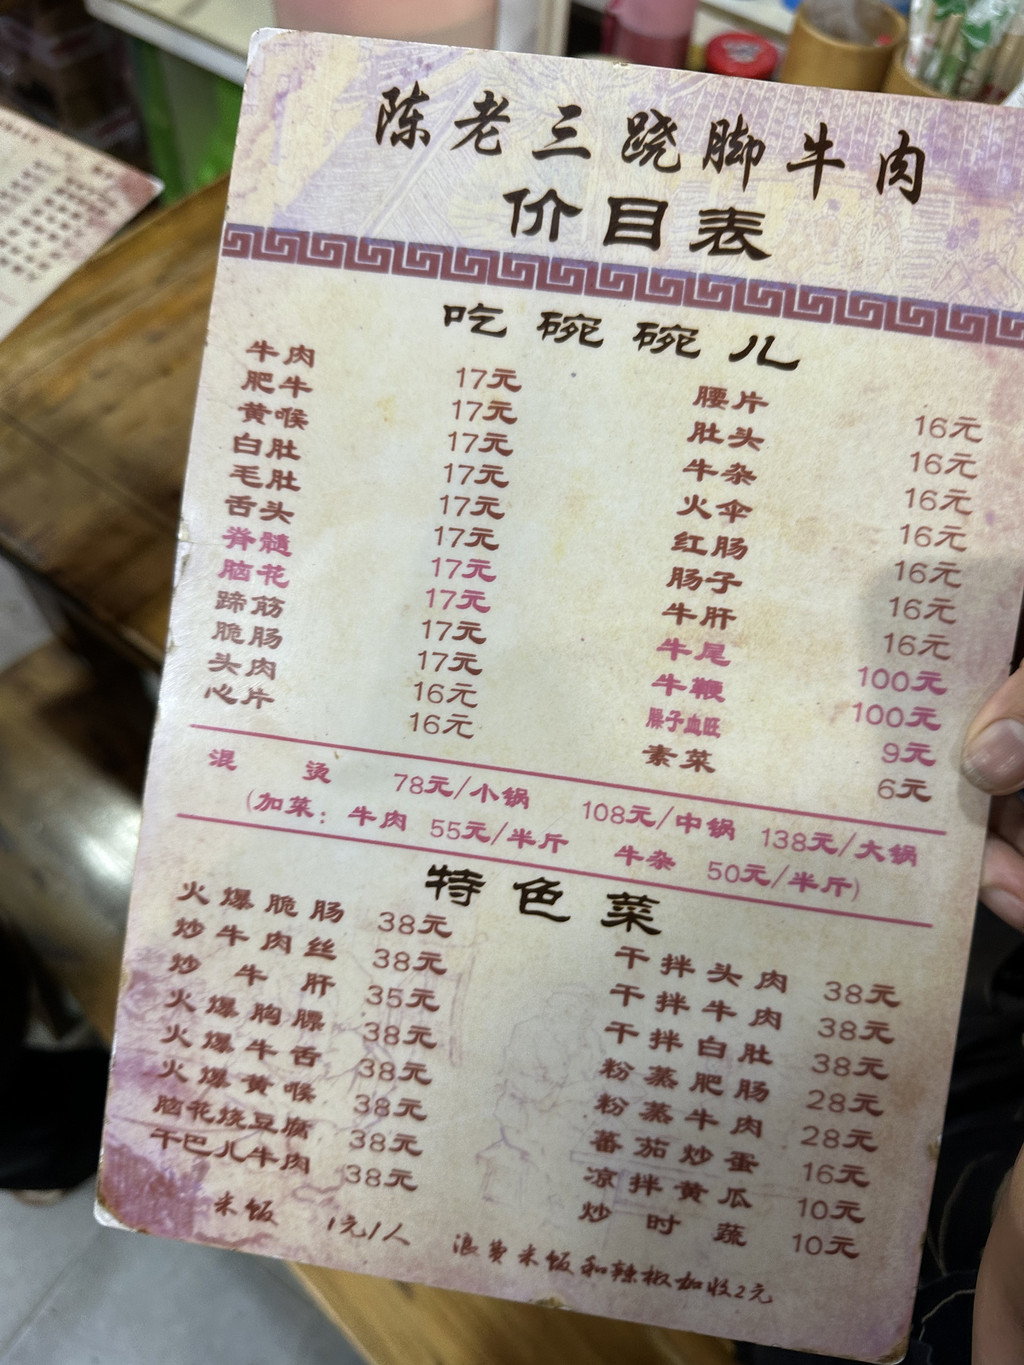 陈老三跷脚牛肉
价目表
吃碗碗儿
牛肉 17元
肥牛 17元
黄喉 17元
白肚 17元
毛肚 17元
舌头 17元
脊髓 17元
脑花 17元
蹄筋 17元
脆肠 17元
头肉 16元
心片 16元
腰片 16元
肚头 16元
牛杂 16元
火伞 16元
红肠 16元
肠子 16元
牛肝 16元
牛尾 100元
牛鞭 100元
臊子血旺 9元
素菜 6元
混烫 78元/小锅 108元/中锅 138元/大锅
(加菜: 牛肉 55元/半斤 牛杂 50元/半斤)
特色菜
火爆脆肠 38元
炒牛肉丝 38元
炒牛肝 35元
火爆胸膘 38元
火爆牛舌 38元
火爆黄喉 38元
脑花烧豆腐 38元
干巴儿牛肉 38元
干拌头肉 38元
干拌牛肉 38元
干拌白肚 38元
粉蒸肥肠 28元
粉蒸牛肉 28元
蕃茄炒蛋 16元
凉拌黄瓜 10元
炒时蔬 10元
米饭 1元/人 浪费米饭和辣椒加收2元